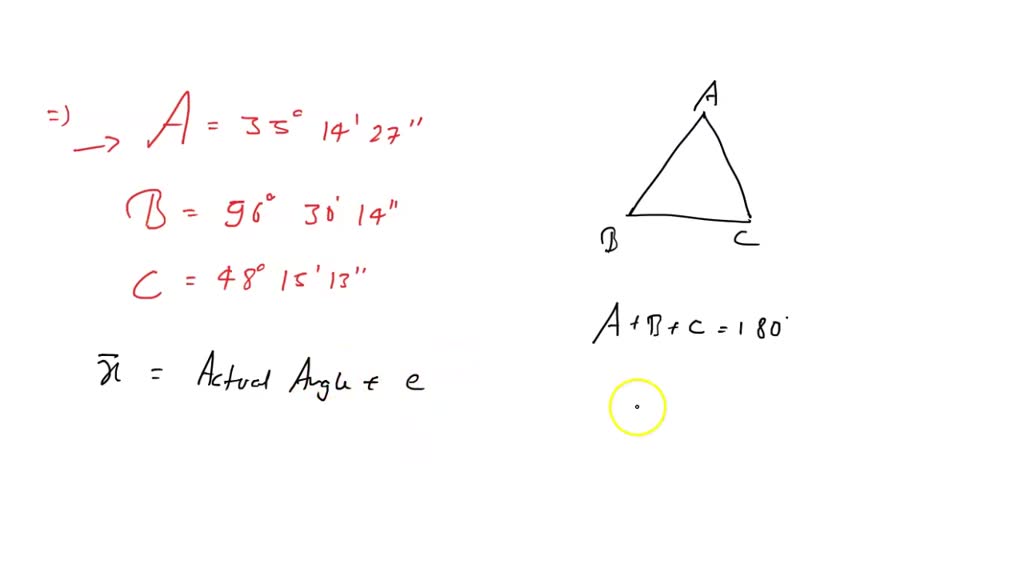 =) → A = 35° 14' 27"
B = 96° 30' 14"
C = 48° 15' 13"
x̄ = Actual Angle + e
A
B C
A + B + C = 180°